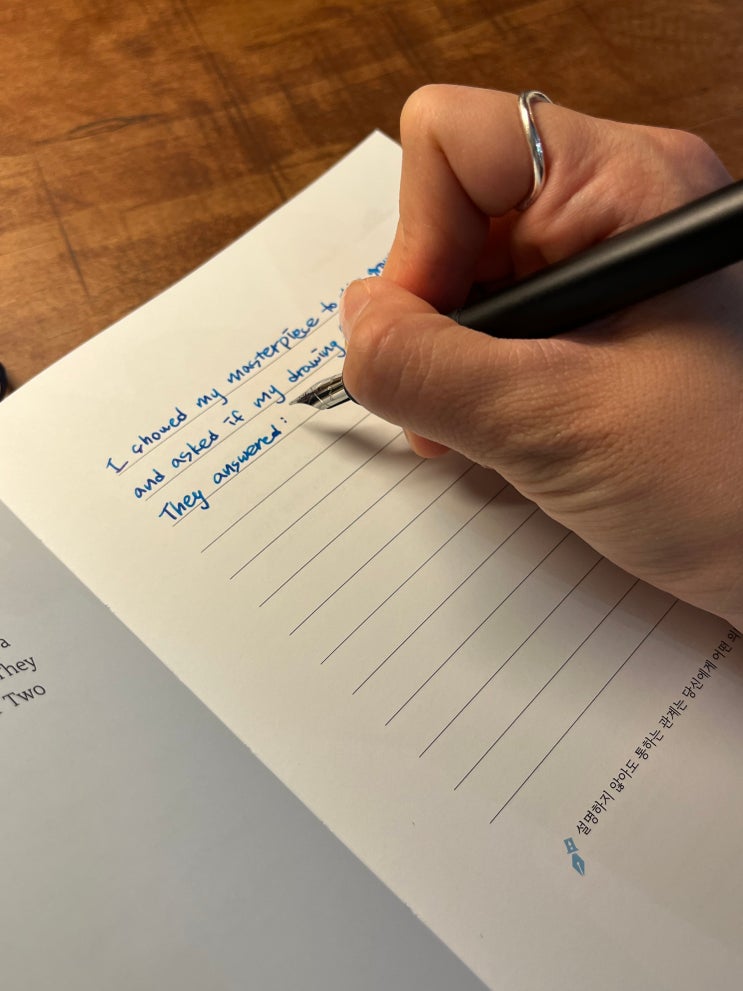 I showed my masterpiece to
and asked if my drawing
They answered:
a
They
Two
설명하지 않아도 통하는 관계는 당신에게 어떤 의